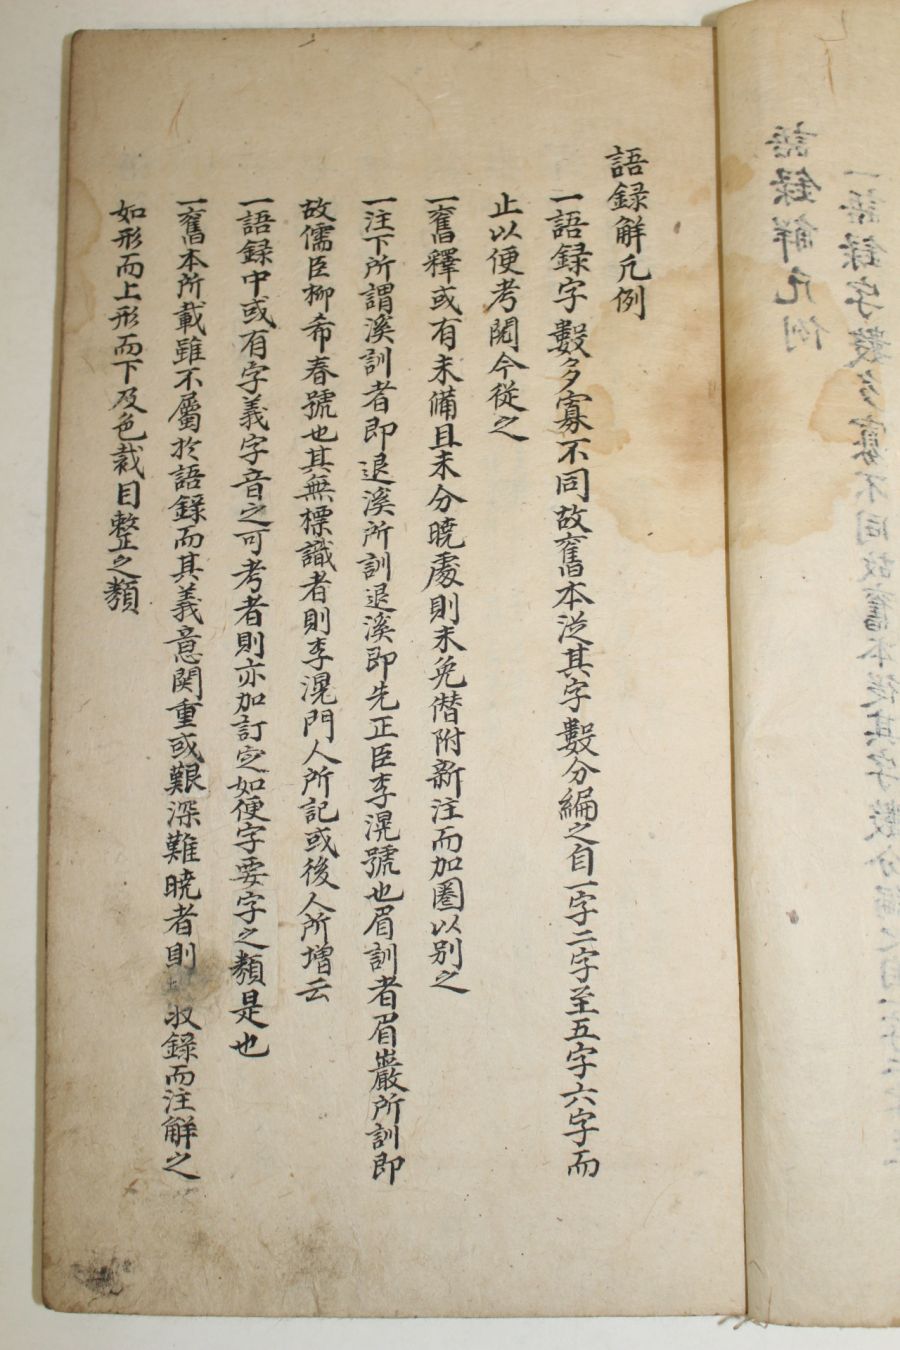 語録解凡例
一語録字數多寡不同故舊本從其字數分編之自一字二字至五字六字而
止以便考閱今從之
一舊釋或有未備且未分曉處則未免僭附新注而加圈以别之
一注下所謂溪訓者即退溪所訓退溪即先正臣李滉號也眉訓者眉巖所訓即
故儒臣柳希春號也其無標識者則李滉門人所記或後人所增云
一語録中或有字義字音之可考者則亦加訂定如便字要字之類是也
一舊本所載雖不屬於語録而其義意関重或艱深難曉者則 収録而注解之
如形而上形而下及色裁目整之類